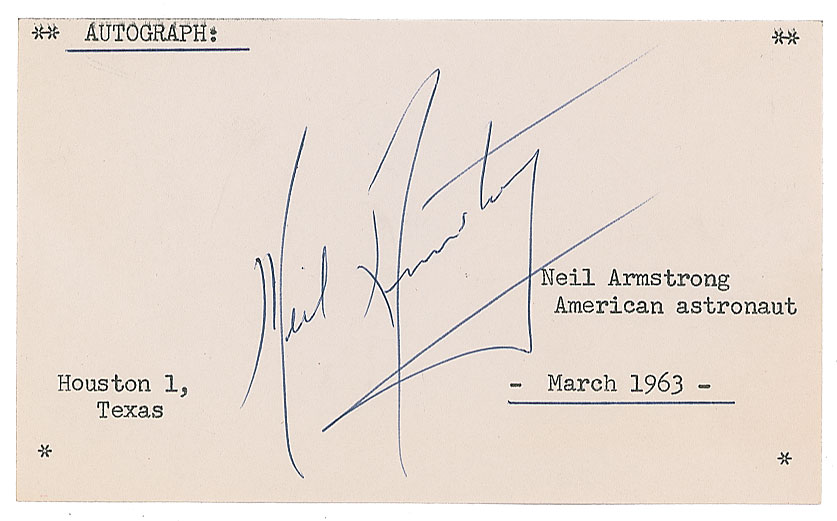 ** AUTOGRAPH: **
Neil Armstrong
Neil Armstrong
American astronaut
Houston 1,
Texas
- March 1963 -
* *